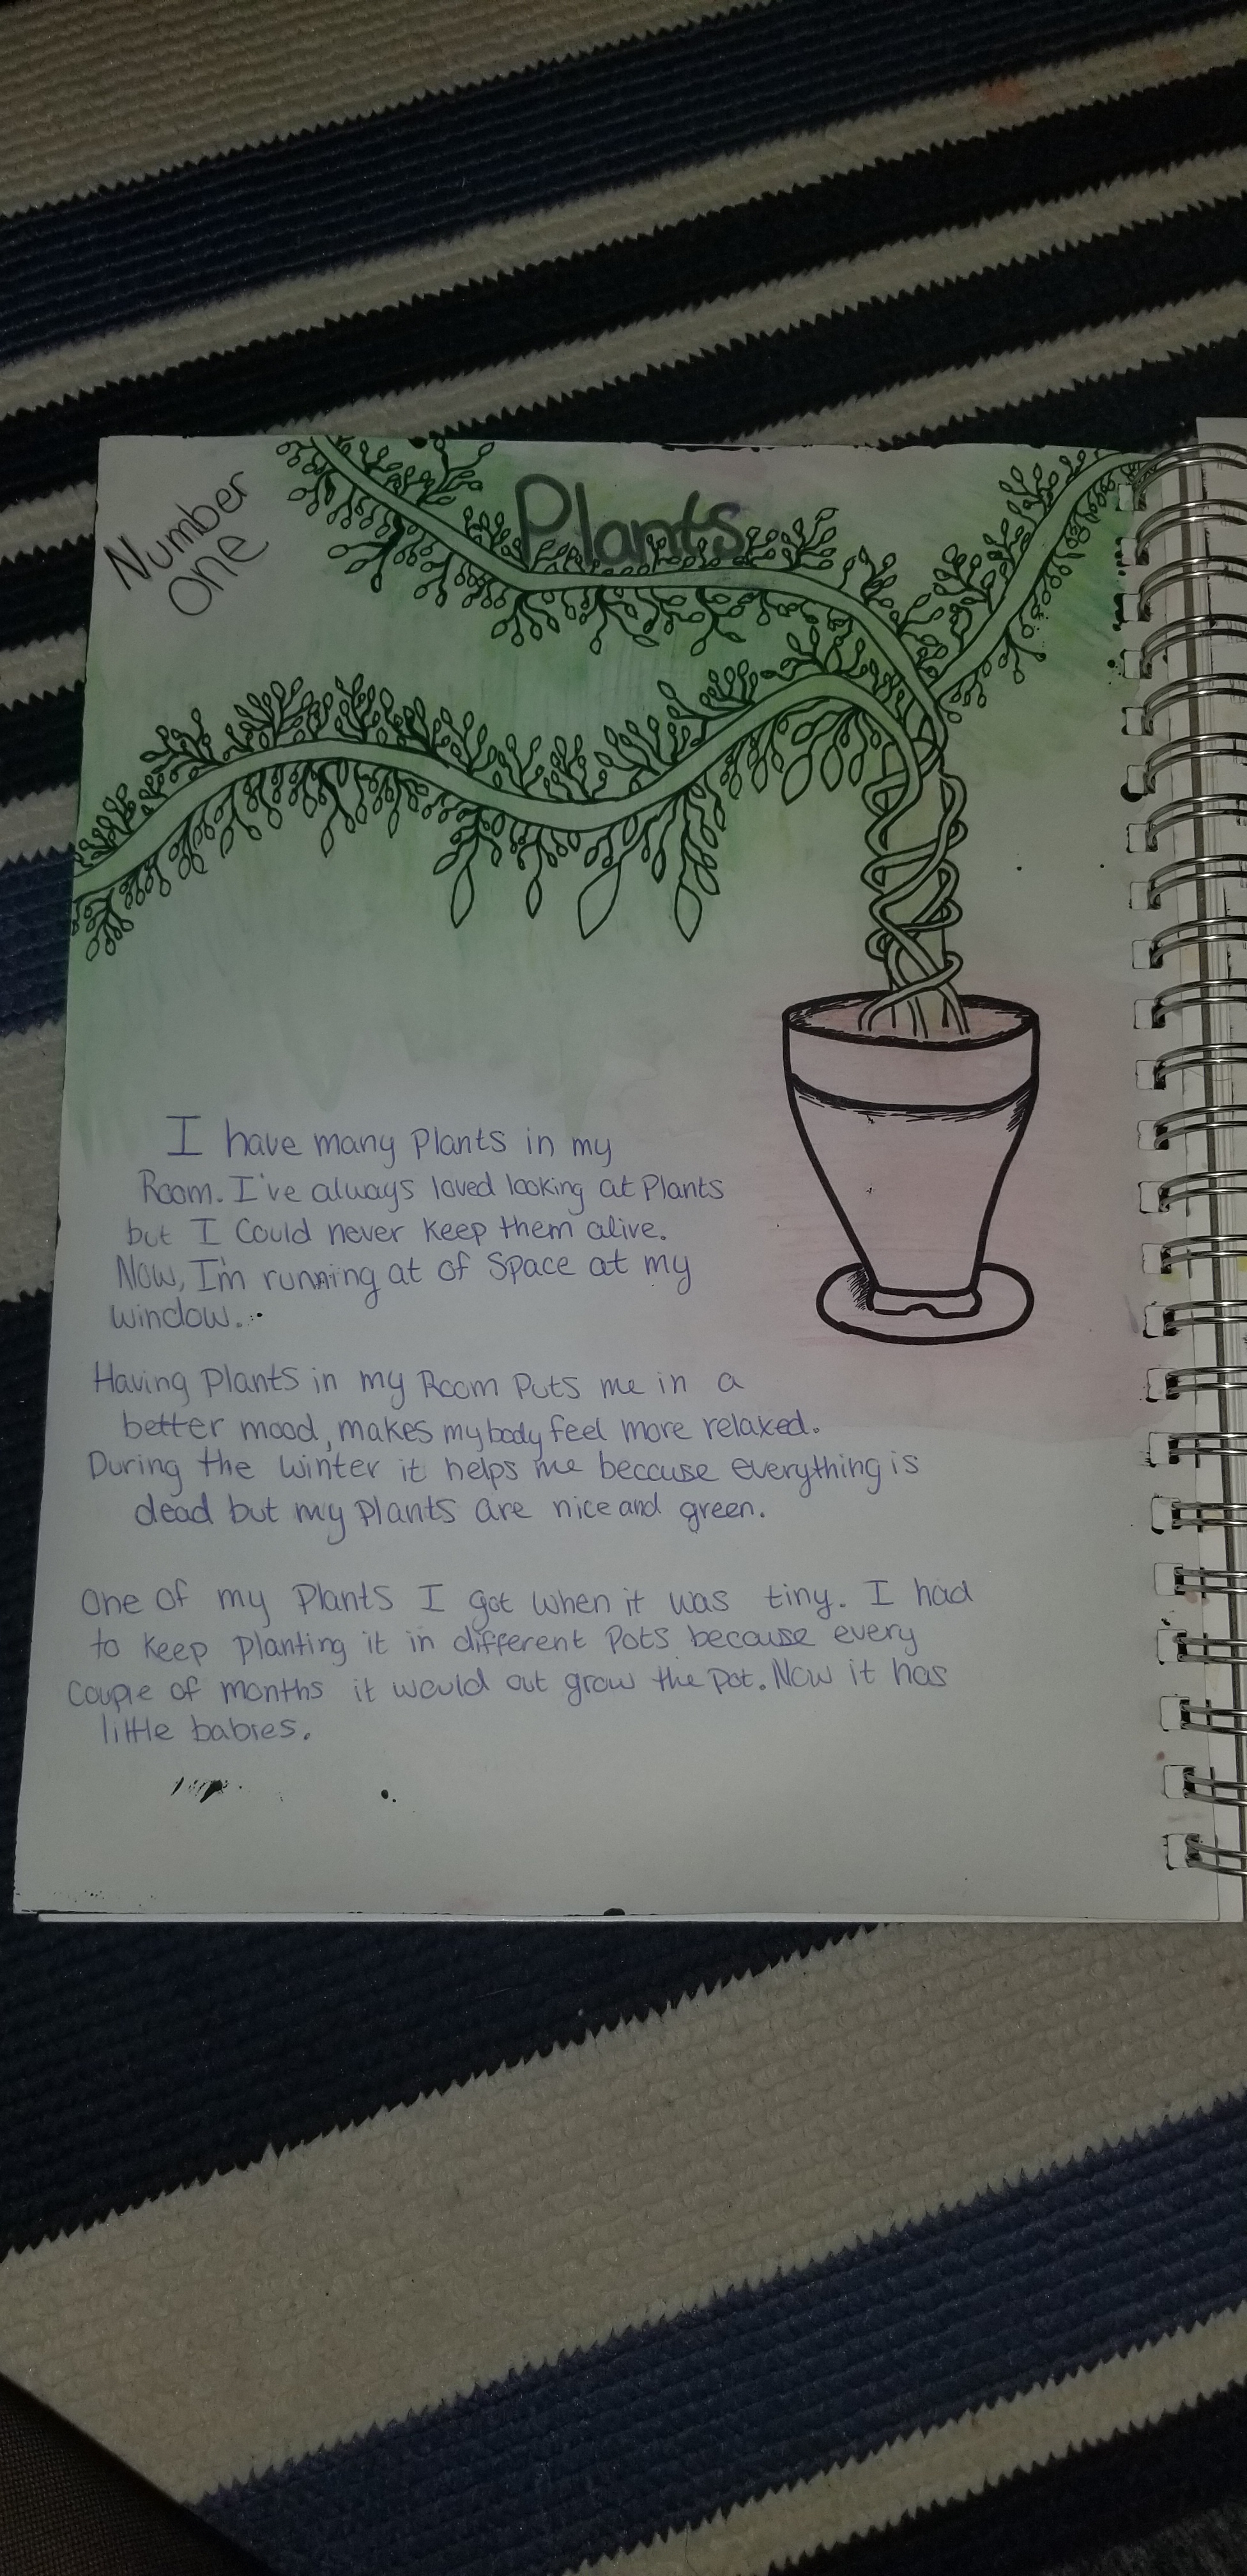 Number
one
Plants
I have many Plants in my
Room. I've always loved looking at Plants
but I Could never keep them alive.
Now, I'm running at of Space at my
window.
Having Plants in my Room Puts me in a
better mood, makes my body feel more relaxed.
During the winter it helps me because everything is
dead but my Plants are nice and green.
One of my Plants I got when it was tiny. I had
to keep Planting it in different Pots because every
Couple of months it would out grow the Pot. Now it has
little babies.